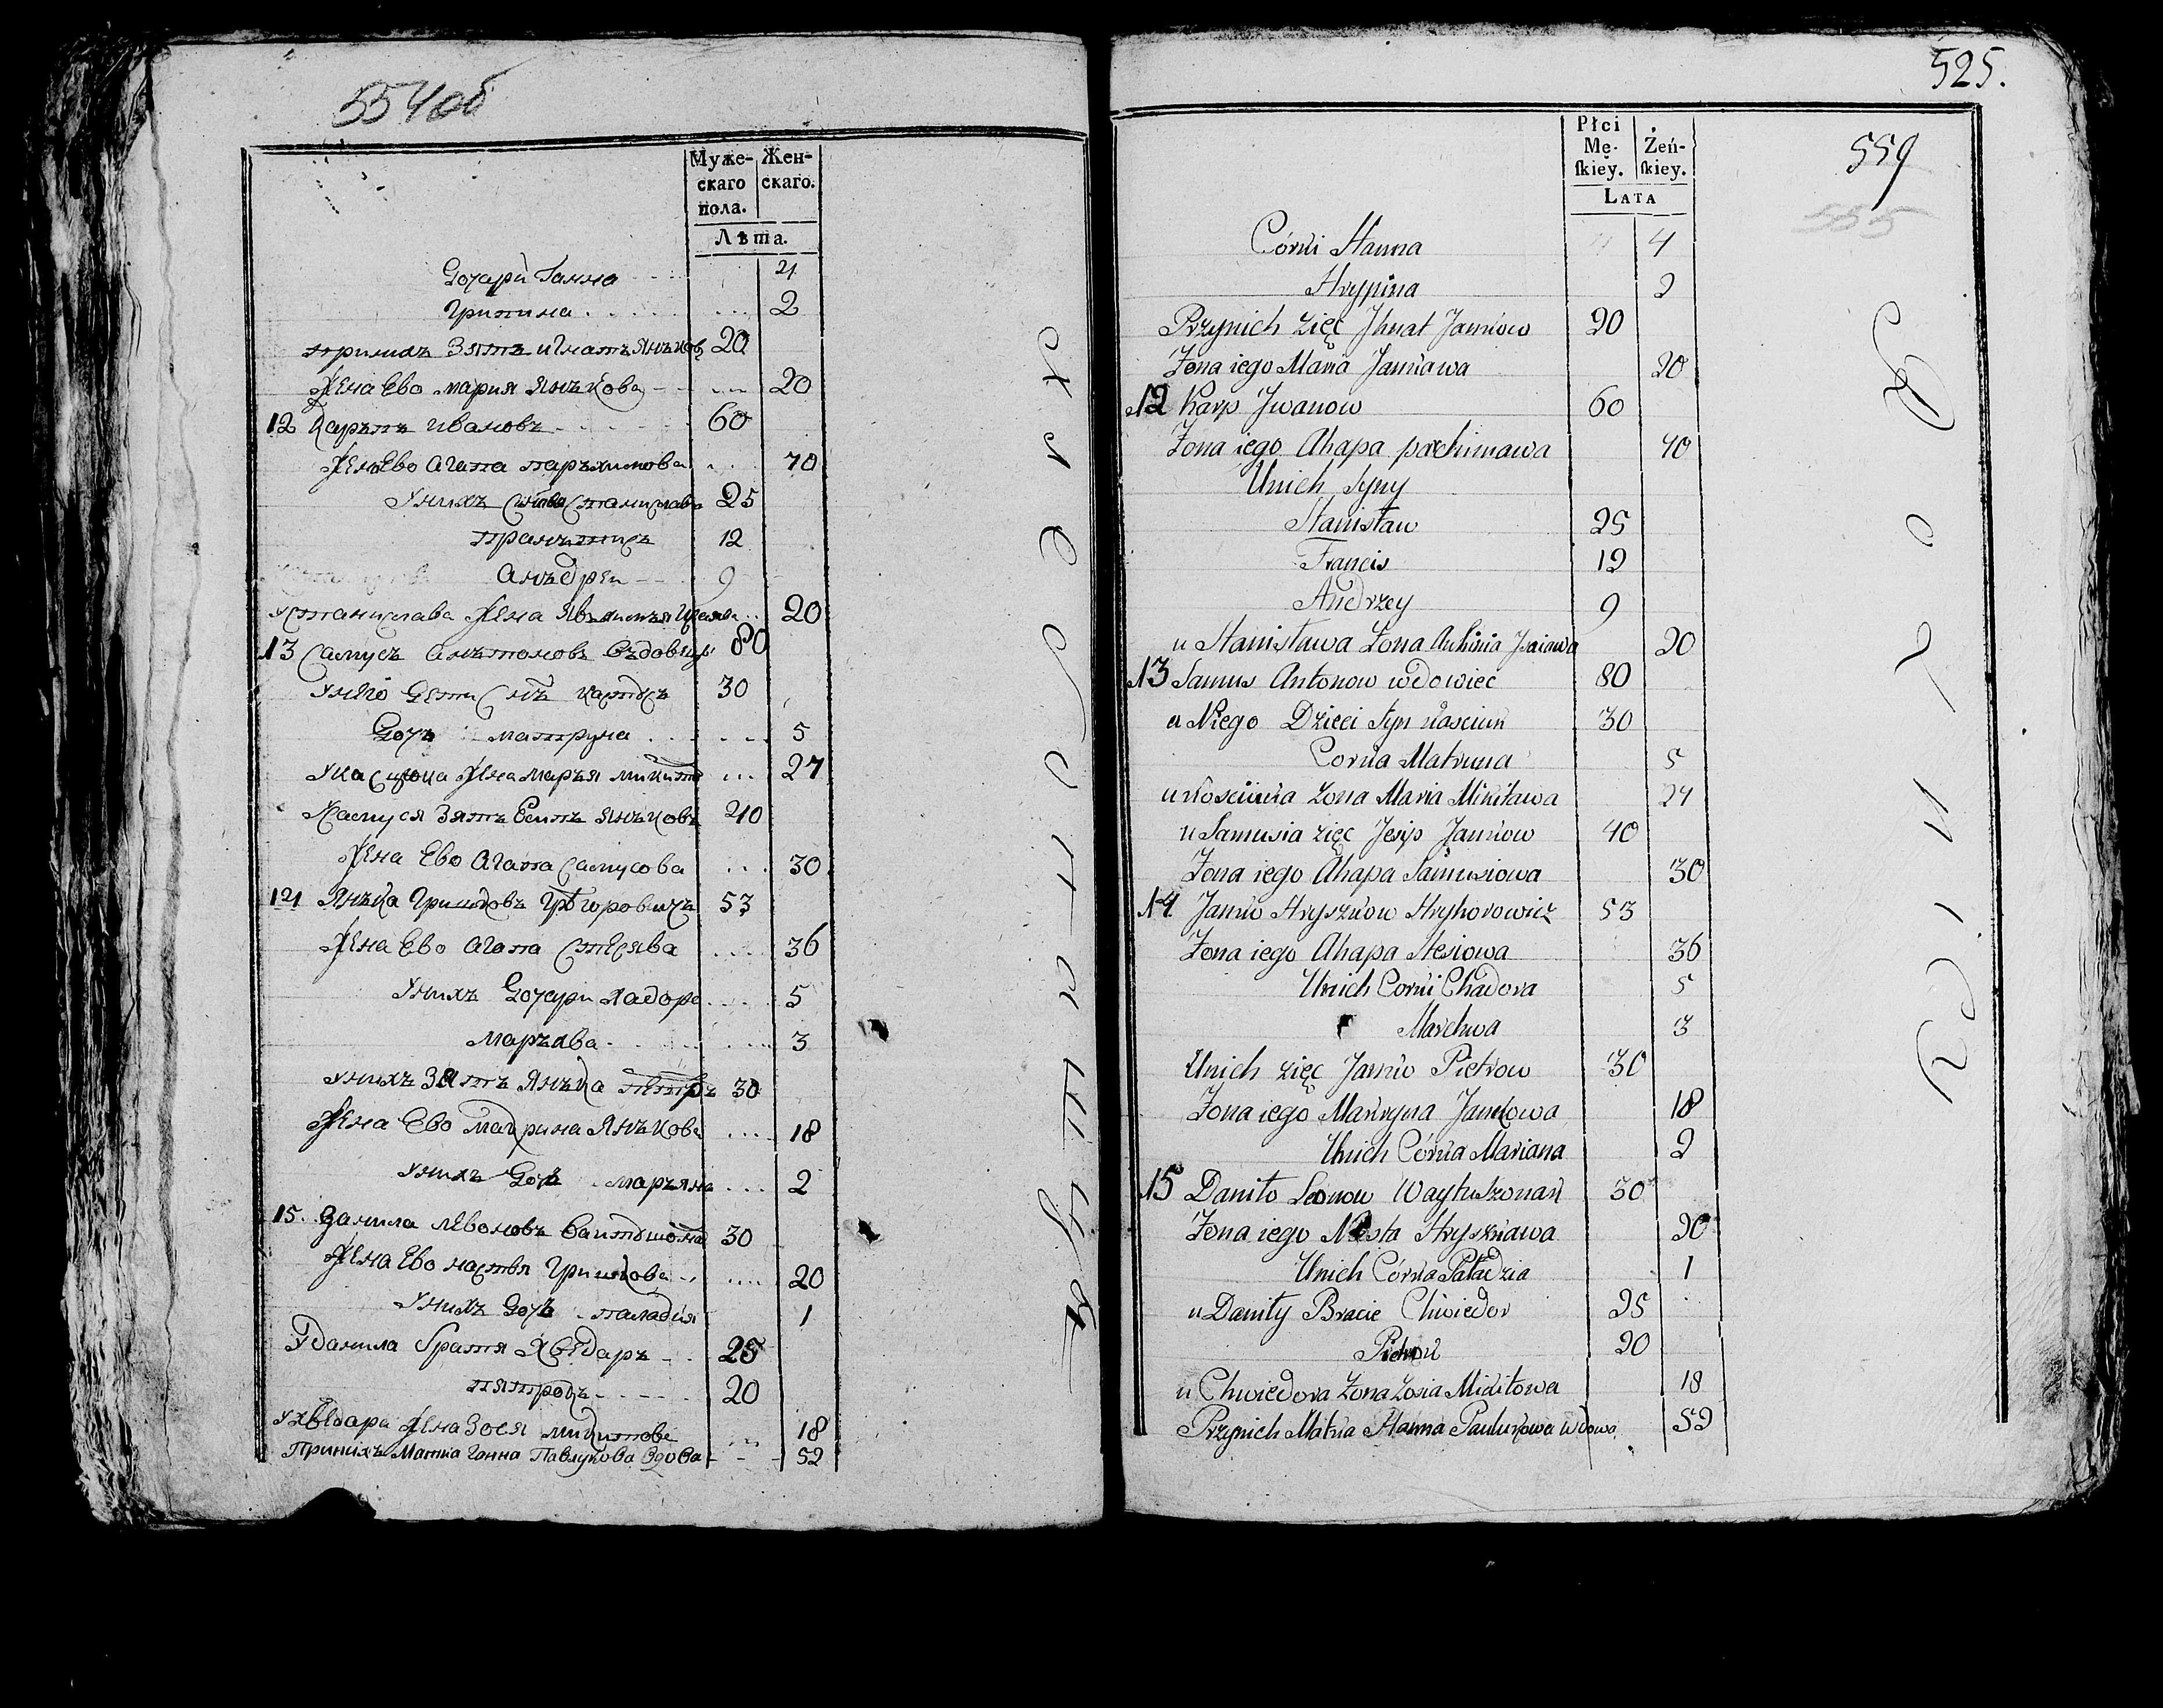 554об
Муже-
скаго
пола.
Жен-
скаго.
Лѣта.
Дочери Ганна 4
Грипина 2
примкъ Зять игнатъ Янъков 20
Жена Ево мария Янъкова 20
12 Карпъ ивановъ 60
Жена Ево Агапа паръхимова 40
Унихъ Станислава 25
пранъцись 12
Анъдреи 9
Устанислава Жена 20
13 Самусъ Анътоновъ въдовец 80
Унѣго Дети Снъ 30
Дочь матруна 5
Жена маръя микит 27
Усамуся Зять Есипъ Янъковъ 40
Жена Ево Агапа Самусова 30
14 Янъка Гришковъ Григоровичъ 53
Жена Ево Агапа Стесява 36
Унихъ Дочери хадора 5
маръхва 3
унихъ Зять Янъка петръ 30
Жена Ево макрина Янъкова 18
унихъ Дочь маръяна 2
15. Данила лѣвоновъ Ваитюшонак 30
Жена Ево настъя Гришкова 20
Унихъ Дочь паладия 1
Уданила братя Хвѣдаръ 25
пятрокъ 20
Ухвѣдара Жена Зося микитова 18
Принихъ Матка Ганна Павлукова вдова 52
525.
559
555
Płci
Mę-
ſkiey.
Żeń-
ſkiey.
LATA
Córki Hanna 4
Hrypina 2
Przynich zięć Jhnat Jankow 20
Żona iego Maria Jankawa 20
12 Karp Jwanow 60
Żona iego Ahapa parchimawa 40
Unich Syny
Stanisław 25
Francis 12
Andrzey 9
u Stanisława Żona Auhinia Jsaiowa 20
13 Samus Antonow wdowiec 80
u Niego Dzieci Syn Kasciuk 30
Corka Matruna 5
u Kosciuka Zona Maria Mikitawa 27
u Samusia zięć Jesip Jankow 40
Żona iego Ahapa Samusiowa 30
14 Janko Hryszkow Hryhorowicz 53
Żona iego Ahapa Stesiowa 36
Unich Corki Chadora 5
Marchwa 3
Unich zięć Janko Pietrow 30
Żona iego Makryna Jankowa 18
Unich Córka Mariana 2
15 Daniło Leonow Waytuszonak 30
Żona iego Nasta Hryszkawa 20
Unich Córka Paładzia 1
u Daniły Bracie Chwiedor 25
Pietruk 20
u Chwiedora Zona Zosia Mikitowa 18
Przynich Matka Hanna Paulukowa Wdowa 52